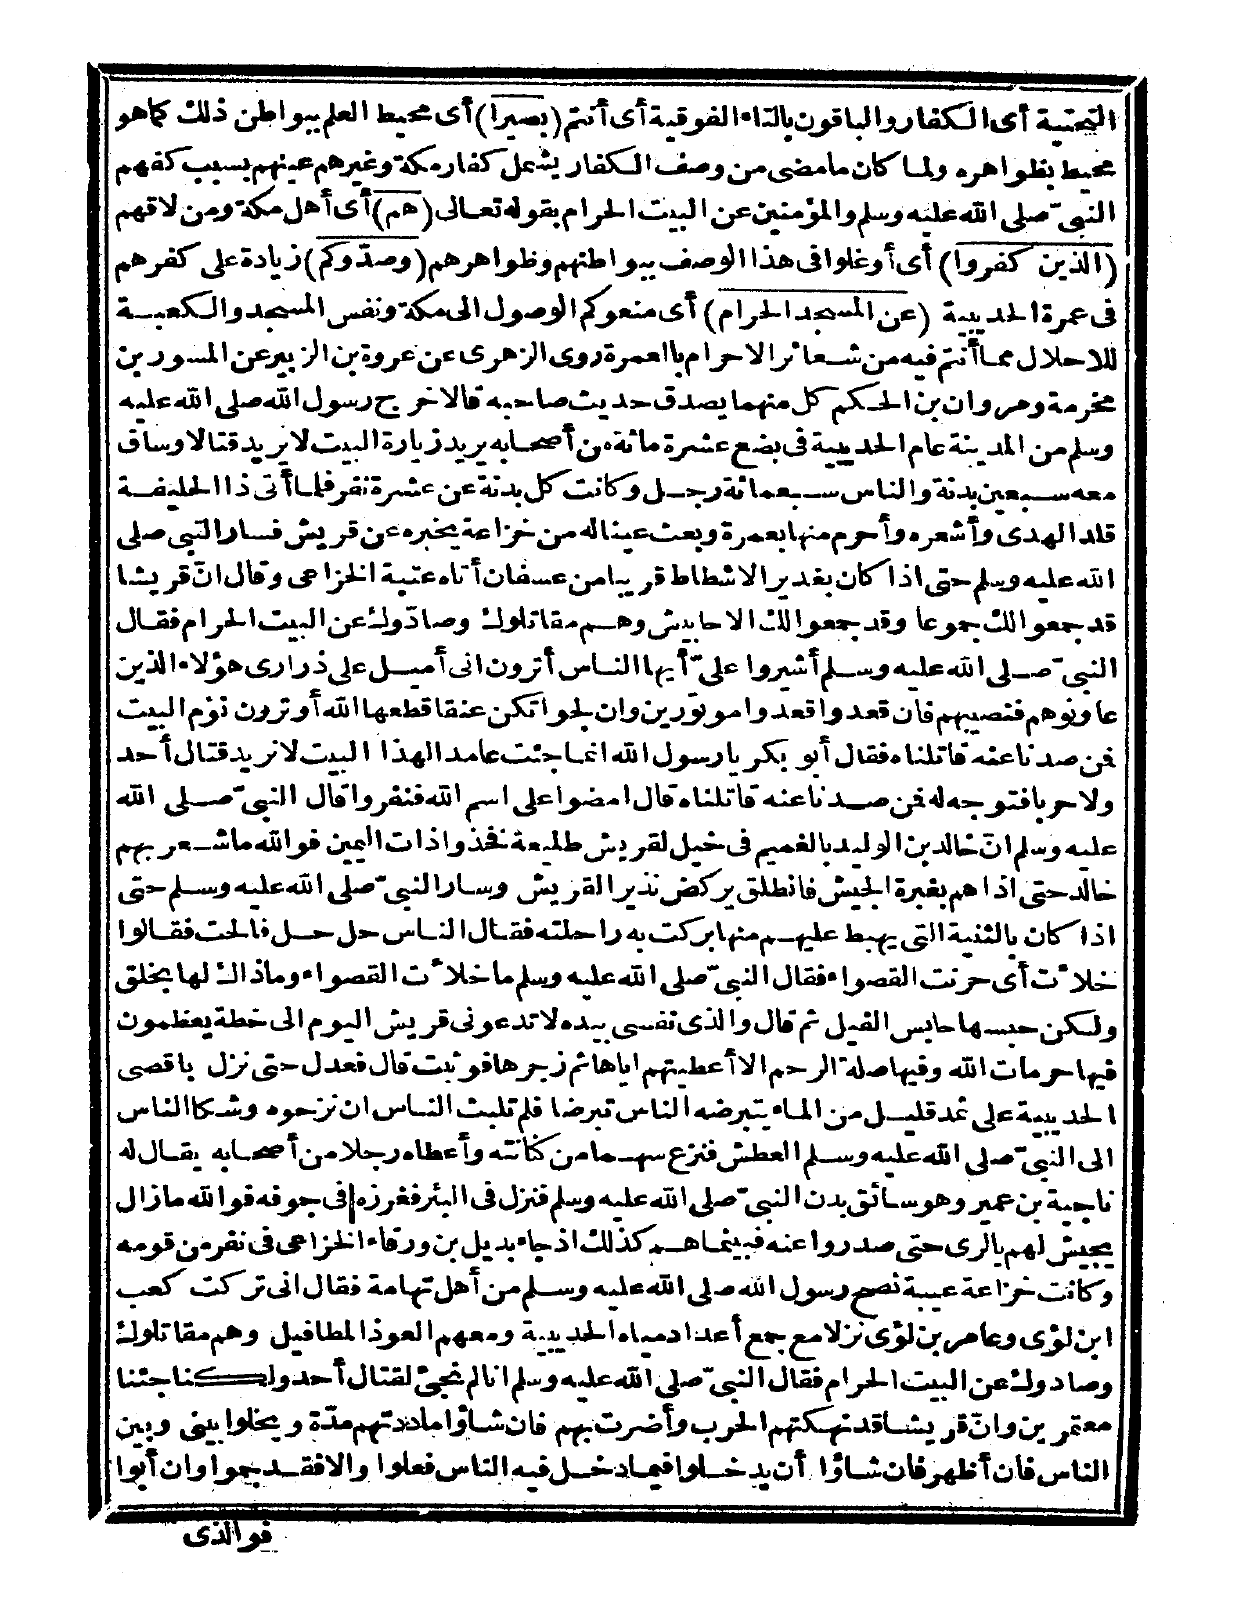 التحتية أى الكفار والباقون بالتاء الفوقية أى أنتم (بصيرا) أى محيط العلم ببواطن ذلك كما هو
محيط بظواهره ولما كان ما مضى من وصف الكفار يشمل كفار مكة وغيرهم عينهم بسبب كفهم
النبىّ صلى الله عليه وسلم والمؤمنين عن البيت الحرام بقوله تعالى (هم) أى أهل مكة ومن لاقهم
(الذين كفروا) أى أوغلوا فى هذا الوصف ببواطنهم وظواهرهم (وصدّوكم) زيادة على كفرهم
فى عمرة الحديبية (عن المسجد الحرام) أى منعوكم الوصول الى مكة ونفس المسجد والكعبة
للاحلال مما أنتم فيه من شعائر الاحرام بالعمرة روى الزهرى عن عروة بن الزبير عن المسور بن
مخرمة ومروان بن الحكم كل منهما يصدق حديث صاحبه قالا خرج رسول الله صلى الله عليه
وسلم من المدينة عام الحديبية فى بضع عشرة مائة من أصحابه يريد زيارة البيت لا يريد قتالا وساق
معه سبعين بدنة والناس سبعمائة رجل وكانت كل بدنة عن عشرة نفر فلما أتى ذا الحليفة
قلد الهدى وأشعره وأحرم منها بعمرة وبعث عينا له من خزاعة يخبره عن قريش فسار النبى صلى
الله عليه وسلم حتى اذا كان بغدير الاشطاط قريبا من عسفان أتاه عتبة الخزاعى وقال انّ قريشا
قد جمعوا لك جموعا وقد جمعوا لك الاحابيش وهم مقاتلوك وصادّوك عن البيت الحرام فقال
النبىّ صلى الله عليه وسلم أشيروا علىّ أيها الناس أترون انى أميل على ذرارى هؤلاء الذين
عاونوهم فنصيبهم فان قعدوا قعدوا موتورين وان نجوا تكن عنقا قطعها الله أو ترون نؤم البيت
فمن صدنا عنه قاتلناه فقال أبو بكر يا رسول الله انما جئت عامدا لهذا البيت لا نريد قتال أحد
ولا حربا فتوجه له فمن صدنا عنه قاتلناه قال امضوا على اسم الله فنفروا قال النبىّ صلى الله
عليه وسلم انّ خالد بن الوليد بالغميم فى خيل لقريش طليعة فخذوا ذات اليمين فوالله ما شعر بهم
خالد حتى اذا هم بغبرة الجيش فانطلق يركض نذيرا لقريش وسار النبىّ صلى الله عليه وسلم حتى
اذا كان بالثنية التى يهبط عليهم منها بركت به راحلته فقال الناس حل حل فألحت فقالوا
خلأت أى حرنت القصواء فقال النبىّ صلى الله عليه وسلم ما خلأت القصواء وما ذاك لها بخلق
ولكن حبسها حابس الفيل ثم قال والذى نفسى بيده لا تدعونى قريش اليوم الى خطة يعظمون
فيها حرمات الله وفيها صلة الرحم الا أعطيتهم اياها ثم زجرها فوثبت قال فعدل حتى نزل باقصى
الحديبية على ثمد قليل من الماء يتبرضه الناس تبرضا فلم تلبث الناس ان نزحوه وشكا الناس
الى النبىّ صلى الله عليه وسلم العطش فنزع سهما من كنانته وأعطاه رجلا من أصحابه يقال له
ناجية بن عمير وهو سائق بدن النبىّ صلى الله عليه وسلم فنزل فى البئر فغرزه فى جوفه فوالله ما زال
يجيش لهم بالرى حتى صدروا عنه فبينما هم كذلك اذ جاء بديل بن ورقاء الخزاعى فى نفر من قومه
وكانت خزاعة عيبة نصح رسول الله صلى الله عليه وسلم من أهل تهامة فقال انى تركت كعب
ابن لؤى وعامر بن لؤى نزلا مع جمع أعداد مياه الحديبية ومعهم العوذ المطافيل وهم مقاتلوك
وصادوك عن البيت الحرام فقال النبىّ صلى الله عليه وسلم انا لم نجئ لقتال أحد ولكنا جئنا
معتمرين وانّ قريشا قد نهكتهم الحرب وأضرت بهم فان شاؤا ماددتهم مدّة ويخلوا بينى وبين
الناس فان أظهر فان شاؤا أن يدخلوا فيما دخل فيه الناس فعلوا والا فقد جموا وان أبوا
فوالذى